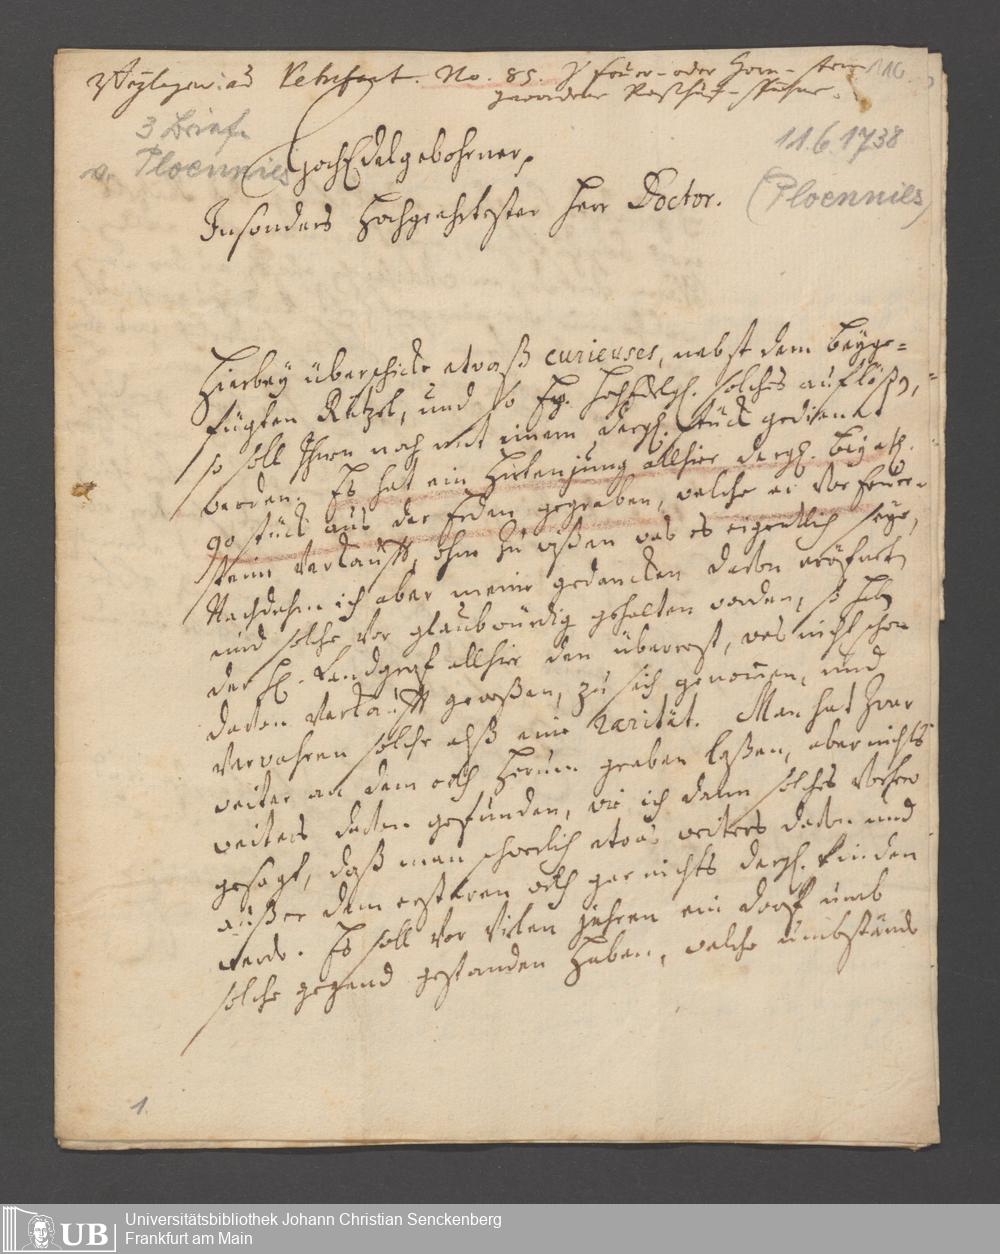 Beylagen ad Petrefact. No. 85. Feuer- oder Horn-stein
gewordene
116
3 Briefe
v. Ploennies
11.6.1738
(Ploennies)
HochEdelgebohrner,
Insonders Hochgeehrtester Herr Doctor.
Hierbey überschicke etwaß curieuses, nebst dem beyge=
fügten Rätzel, und so Ew. HochEdlgb. solches auflößen,
so soll Ihnen noch mit einem dergl. stück gedienet
werden. Es hat ein Hirtenjung allhier dergl. bey etl.
90 stück aus der Erden gegraben, welche er vor feuer-
stein verkaufft, ohne zu wißen was es eigentlich seye,
Nachdehm ich aber meine gedancken davon eröffnet
und solche vor glaubwürdig gehalten worden, so hab
der H. Landgraf allhier den überrest, was nicht schon
davon verkaufft geweßen, zu sich genommen, und
verwahren solche alß eine Rarität. Man hat zwar
weiter an dem orth herum graben laßen, aber nichts
weiters davon gefunden, wie ich dann solches vorhero
gesagt, daß man schwerlich etwas weiters davon und
außer dem ersteren orth gar nichts dergl. finden
werde. Es soll vor vielen jahren ein dorff umb
solche gegend gestanden haben, welche umbstände
1
UB
Universitätsbibliothek Johann Christian Senckenberg
Frankfurt am Main